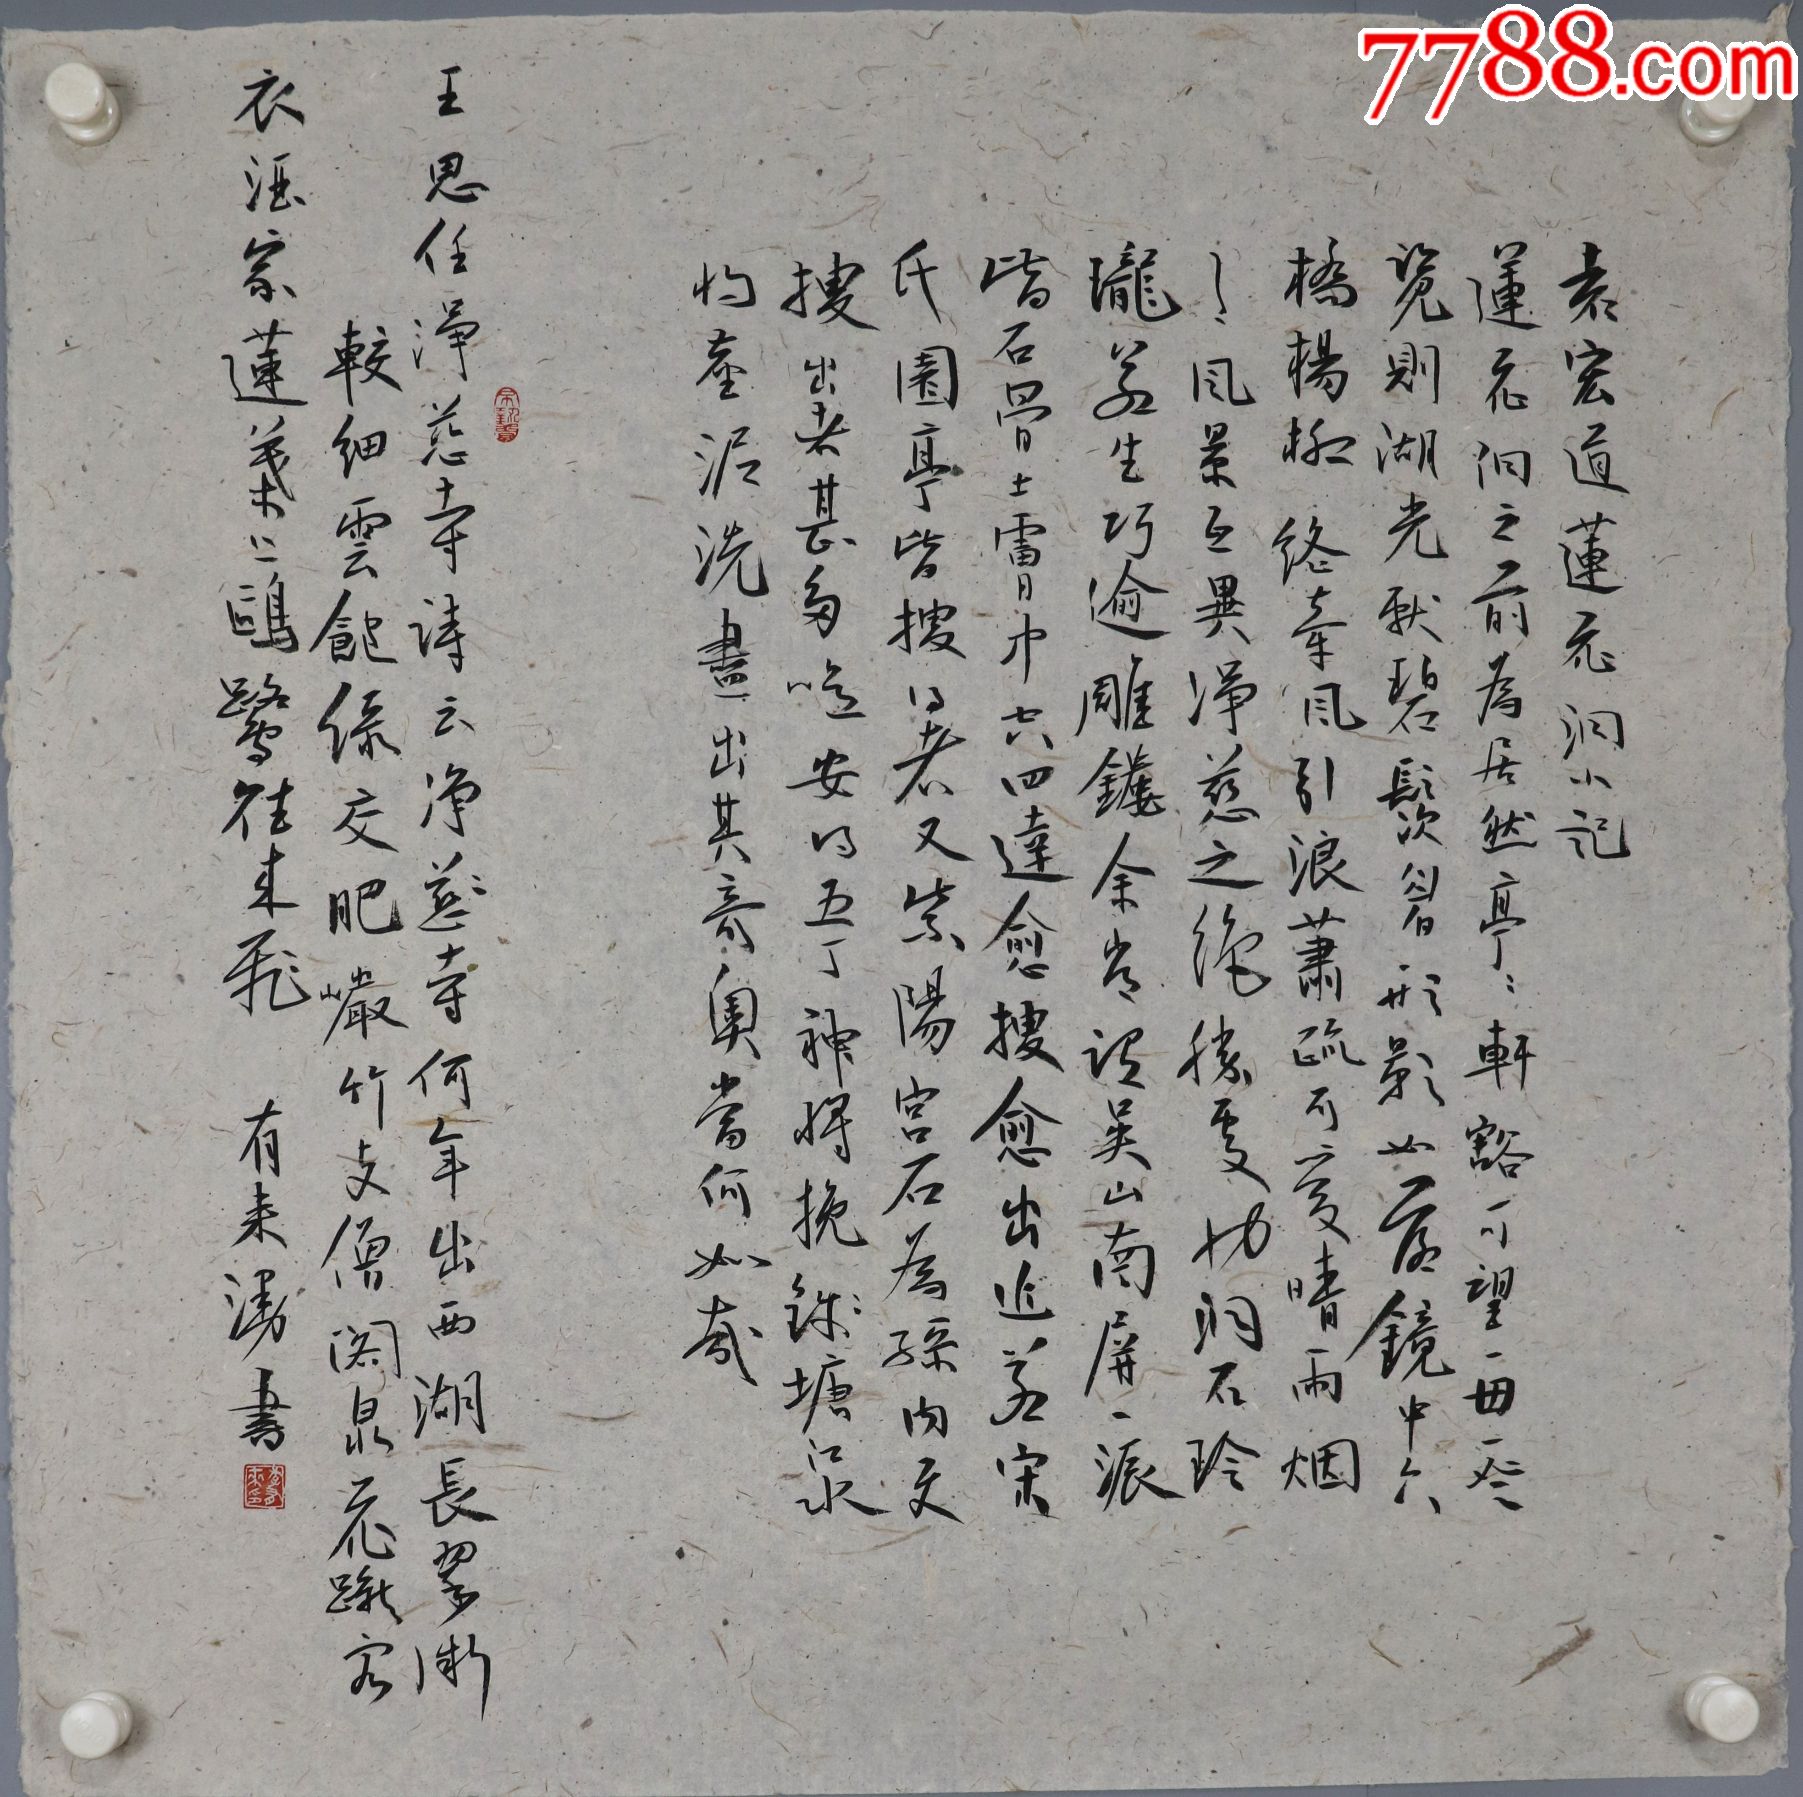 袁宏道蓮花洞小記
蓮花洞之前為居然亭〻軒豁可望一毎一登
覽則湖光献碧鬚眉形影如落鏡中六
橋楊柳絡牽風引浪蕭疏可愛晴雨烟
風景互異淨慈之絶勝處也洞石玲
瓏若生巧逾雕鏤余嘗謂吴山南屏一派
皆石骨土膚中穴四達愈搜愈出近若宋
氏園亭皆搜得者又紫陽宮石為孫内史
搜出者甚多噫安得五丁神將挽錢塘江水
將塵泥洗盡出其奇奥當何如哉
王思任淨慈寺詩云淨慈寺何年出西湖長翠微
較細雲飽緑交肥巖竹支僧閣泉花蹴客
衣酒家蓮葉上鷗鷺往来飛 有来湧書
7788.com